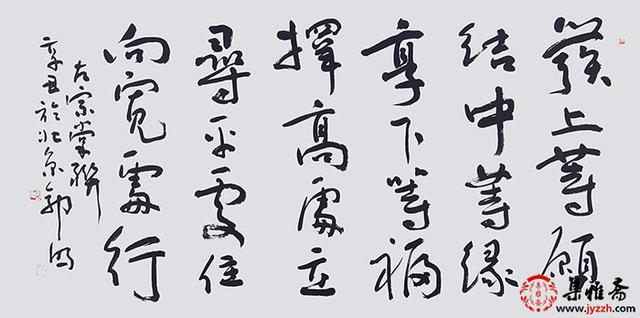 發上等願
結中等緣
享下等福
擇高處立
尋平處住
向寬處行
左宗棠聯
辛丑於北京郭
集雅斋
www.jyzzh.com